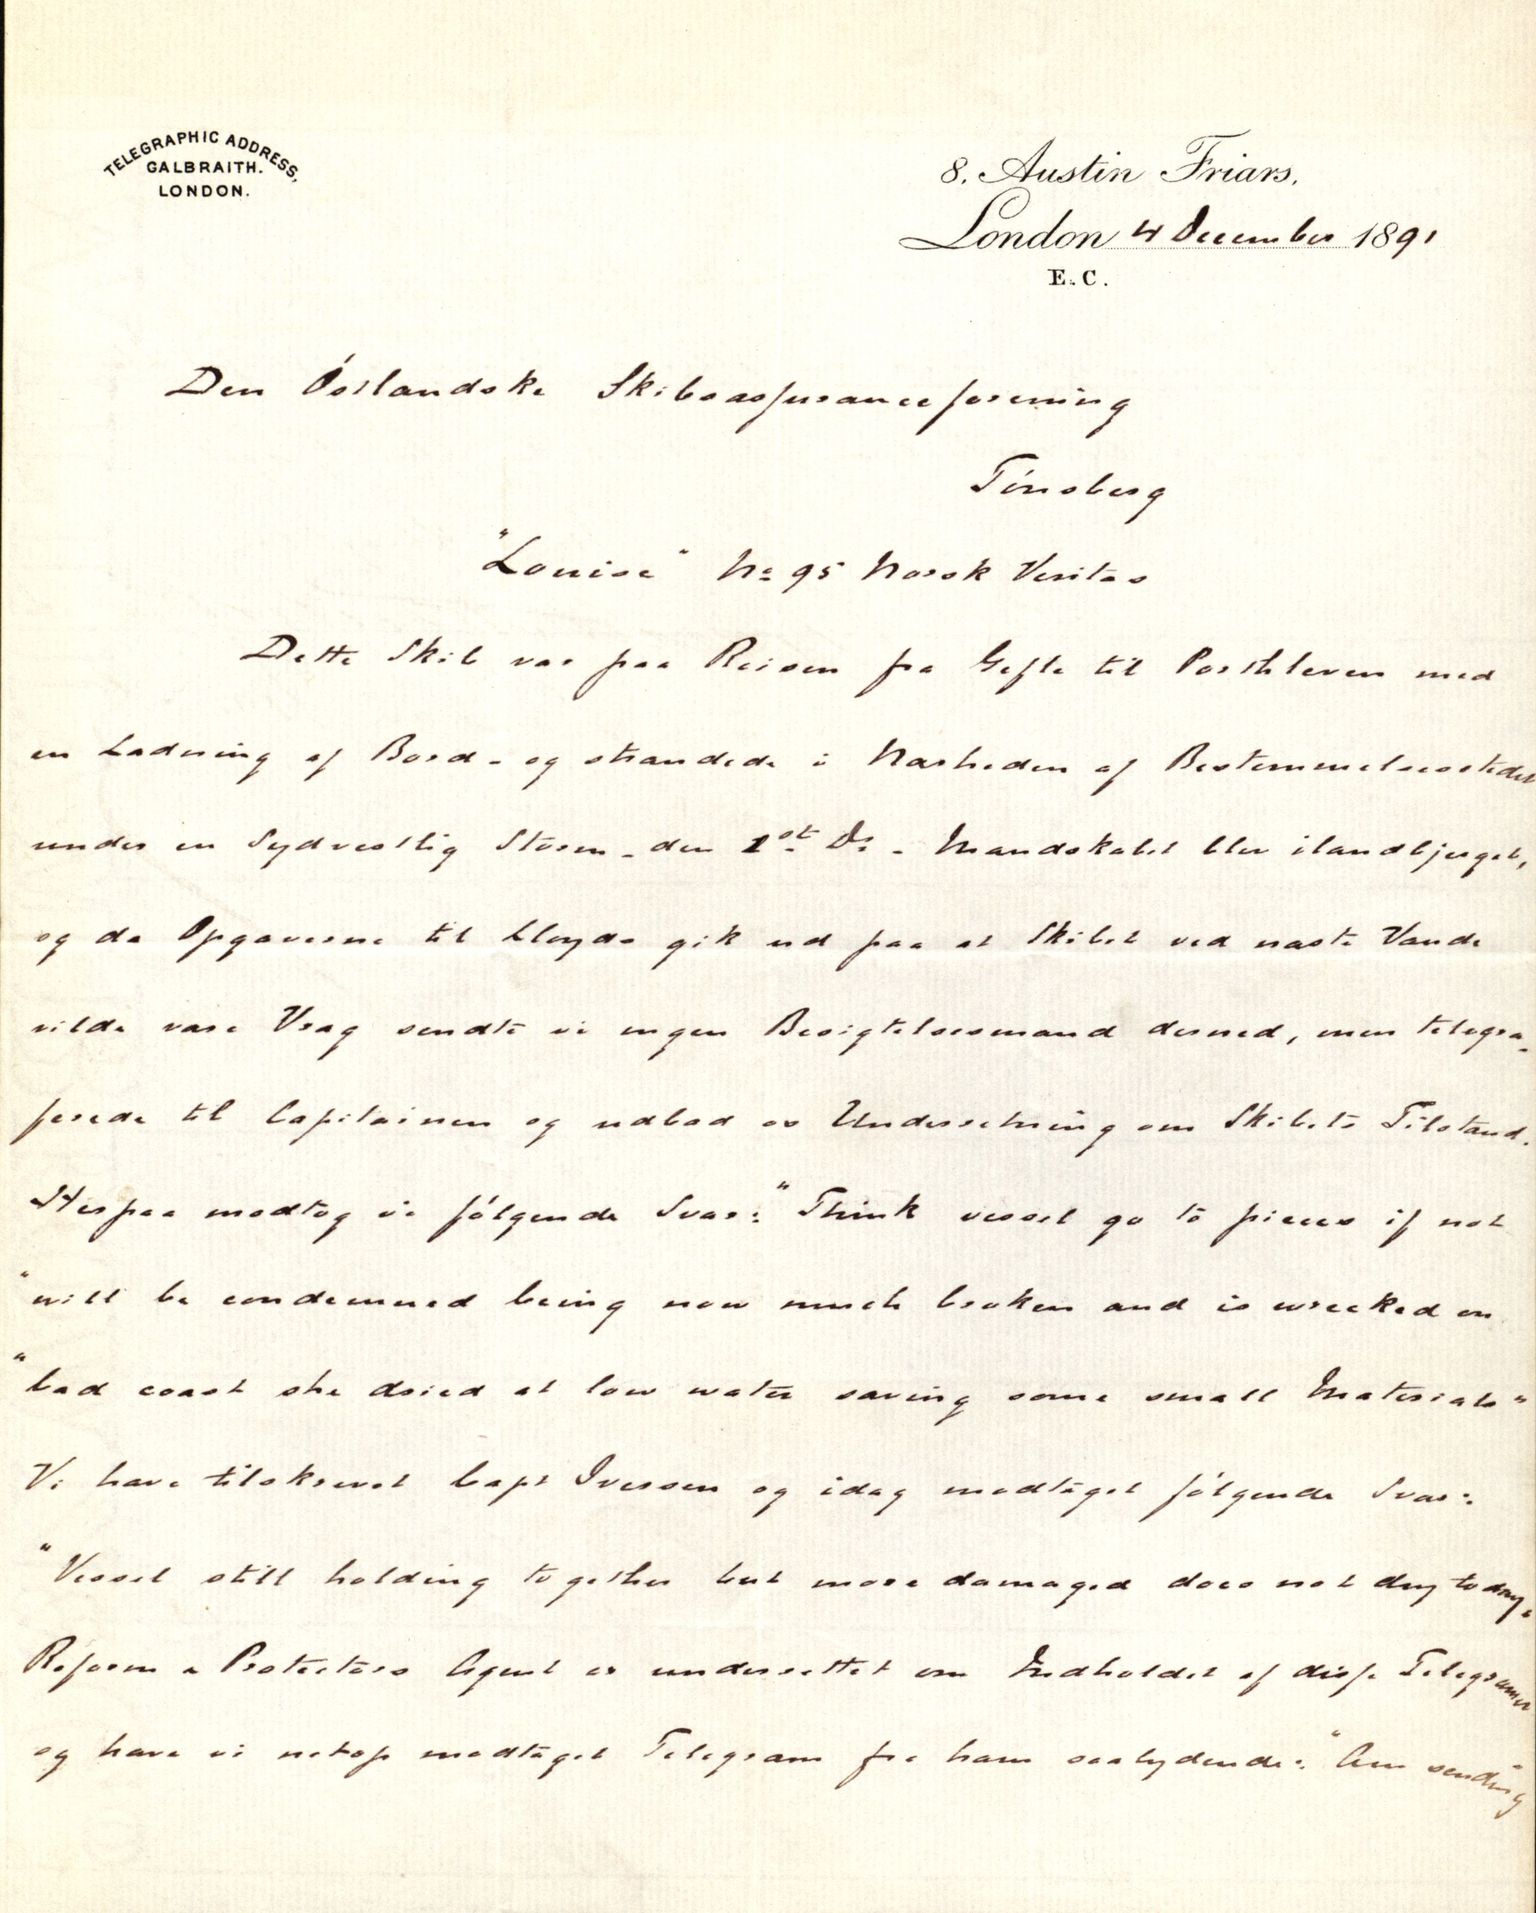 TELEGRAPHIC ADDRESS,
GALBRAITH.
LONDON.
8, Austin Friars,
London 4 December 1891
E.C.
Den Óstlandske Skibsassuranceforening
Tónsberg
"Louise" No 95 Norsk Veritas
Dette Skib var paa Reisen fra Gefle til Porthleven med
en Ladning af Bord - og strandede i Nærheden af Bestemmelsesstedet
under en Sydvestlig Storm - den 1st Ds. - Mandskabet blev ilandbjerget,
og da Opgaverne til Lloyds gik ud paa at Skibet ved næste Vande
vilde være Vrag sendte vi ingen Besigtelsesmand derned, men telegra-
ferede til Capitainen og udbad os Underretning om Skibets Tilstand.
Herpaa modtog vi fólgende Svar: "Think vessel go to pieces if not
"will be condemned being now much broken and is wrecked on
"bad coast she dried at low water saving some small Materials"
Vi have tilskrevet Capt Iversen og idag modtaget fólgende Svar:
"Vessel still holding together but more damaged does not dry to day."
Reform & Protectors Agent er underrettet om Indholdet af disse Telegramer
og have vi netop modtaget Telegram fra ham saalydende: "Am sending